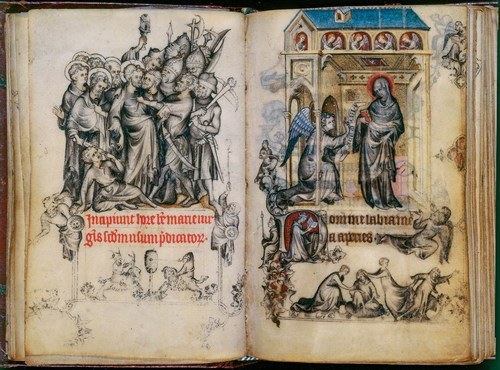 Incipiunt hore be marie uir
gis scdm usum pdicator.
Domine labia me
a aperies.